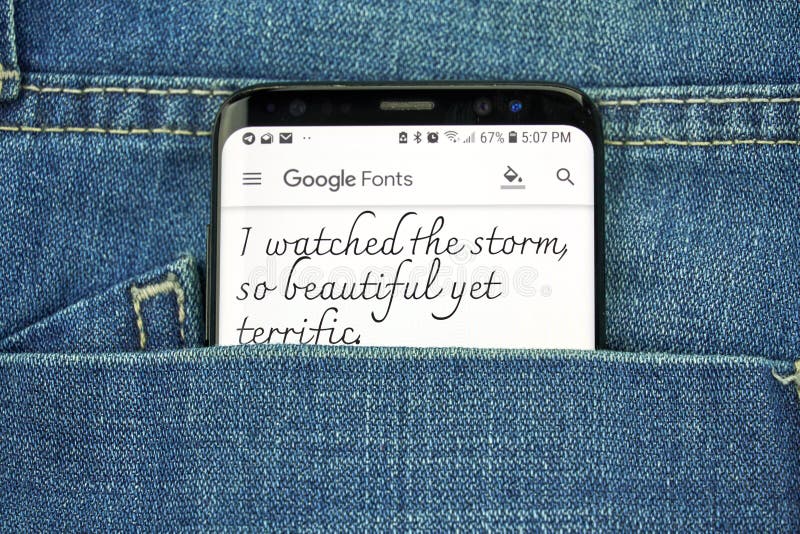 67% 5:07 PM
Google Fonts
I watched the storm,
so beautiful yet
terrific.
dreamstime